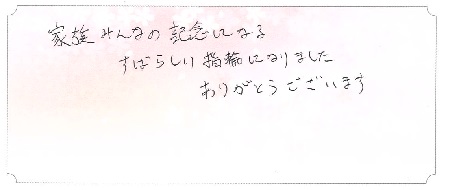 家族みんなの記念になる
すばらしい指輪になりました
ありがとうございます